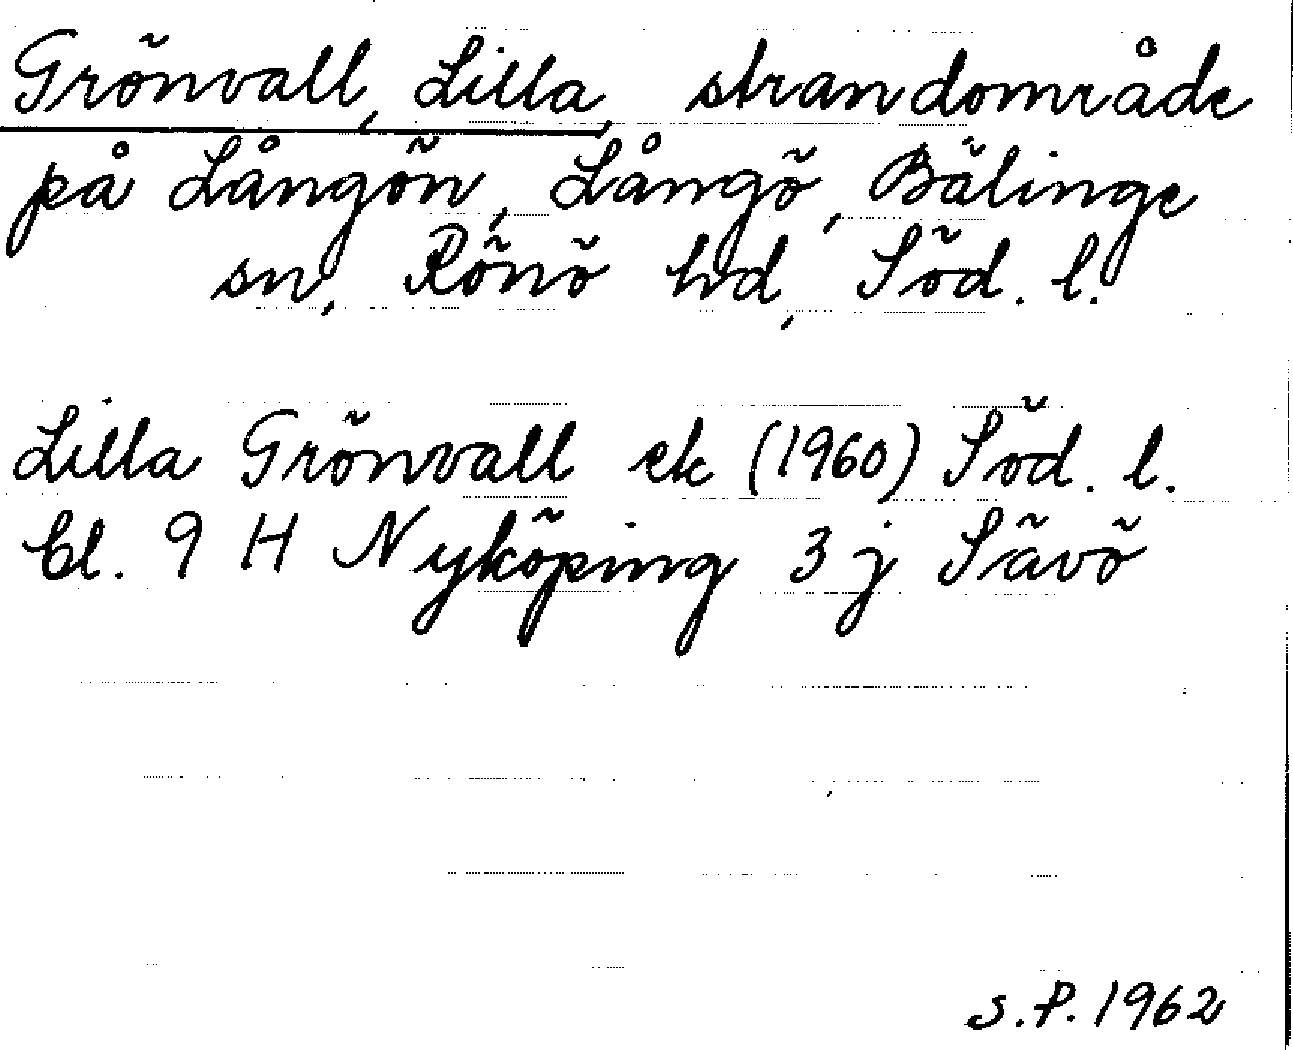 Grönvall, Lilla, strandområde
på Långön, Långö, Bälinge
sn, Rönö hd, Söd. l.
Lilla Grönvall ek (1960) Söd. l.
bl. 9 H Nyköping 3 j Sävö
S.P. 1962